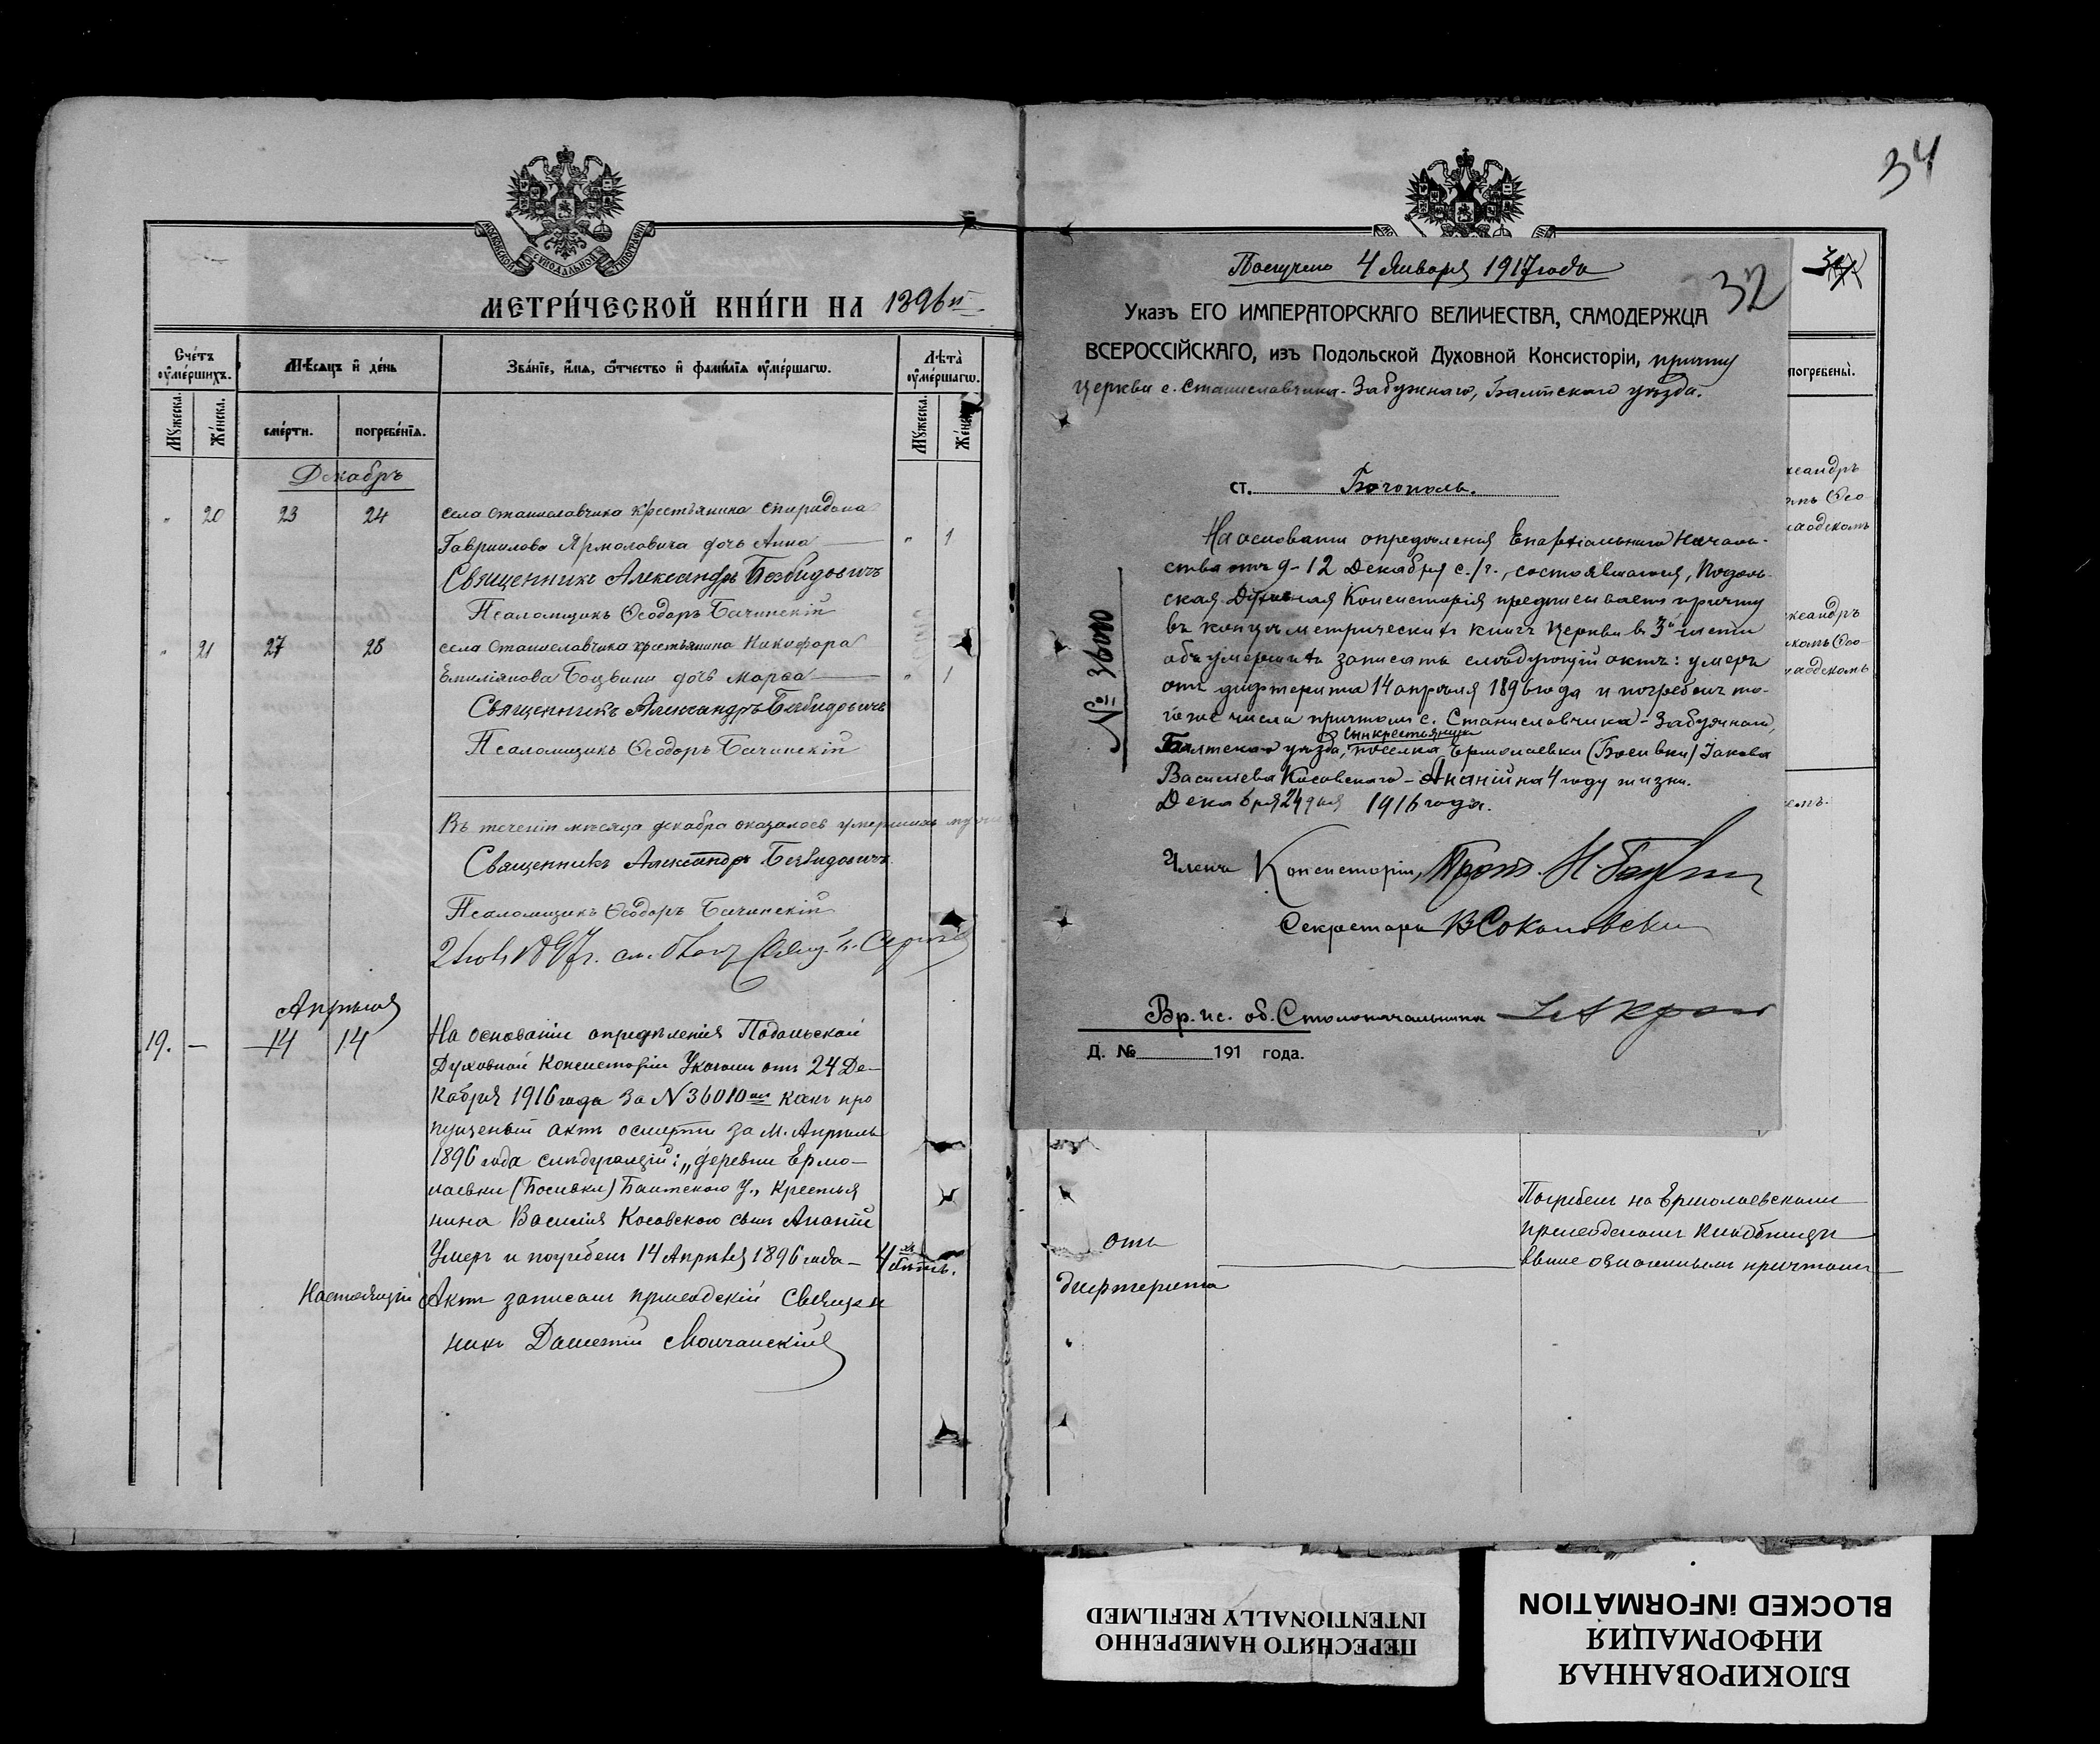 МОСКОВСКОЙ СѴНОДАЛЬНОЙ ТИПОГРАФІИ
МЕТРИ́ЧЕСКОЙ КНИ́ГИ НА 1896 й
Сче́тъ ᲂу҆ме́ршихъ.
Мѣ́сяцъ и҆ де́нь
Зва́нїе, и҆́мѧ, ѻ҆́тчество и҆ фами́лїѧ ᲂу҆ме́ршагѡ.
Лѣта̀ ᲂу҆ме́ршагѡ.
Мꙋ́жеска. Же́нска. сме́рти. погребе́нїѧ. Мꙋ́жеска.
Декабрь
" 20 23 24 села Станиславчика крестьянина Спиридона
Гавриилова Ярмоловича дочь Анна " 1
Священникъ Александръ Безвидовичъ
Псаломщикъ Ѳеодоръ Бачинскій
" 21 27 28 села Станиславчика крестьянина Никифора
Емиліянова Боцвини дочь Марѳа " 1
Священникъ Александръ Безвидовичъ
Псаломщикъ Ѳеодоръ Бачинскій
Въ теченіи мѣсяца декабра оказалось умершихъ
Священникъ Александръ Безвидовичъ
Псаломщикъ Ѳеодоръ Бачинскій
Апрѣля
19. — 14 14 На основаніи опредѣленія Подольской
Духовной Консисторіи Указомъ отъ 24 Де-
кабря 1916 года за N 36010 мъ какъ про
пущеный актъ о смерти за м. Апрѣль
1896 года слѣдующій: „деревни Ермо-
лаевки (Босивки) Балтскаго у., крестья
нина Василія Косовского сынъ Ананій
Умеръ и погребенъ 14 Апрѣля 1896 года — 4 лѣтъ.
Настоящій Актъ записалъ приходскій Священ
никъ Молчанскій
34
Получено 4 Января 1917 года
32
Указъ ЕГО ИМПЕРАТОРСКАГО ВЕЛИЧЕСТВА, САМОДЕРЖЦА
ВСЕРОССІЙСКАГО, изъ Подольской Духовной Консисторіи, причту
церкви с. Станиславчика-Забужнаго, Балтскаго уѣзда.
ст. Богополь.
На основаніи опредѣленія Епархіальнаго Началь-
ства отъ 9-12 Декабря с./г., состоявшагося, Подоль-
ская Духовная Консисторія предписываетъ причту
въ концѣ метрическихъ книгъ церкви въ 3й части
объ умершихъ записать слѣдующій актъ: умеръ
отъ дифтерита 14 апрѣля 1896 года и погребенъ то-
гоже числа причтомъ с. Станиславчика-Забужнаго,
сынъ крестьянина
Балтскаго уѣзда, поселка Ермолаевки (Босивки) Іакова
Васильева Косовскаго - Ананій на 4 году жизни.
Декабря 24 дня 1916 года.
№ 36010
Членъ Консисторіи, Прот.
Секретарь В Соколовскій
Вр. ис. об. Столоначальника
Д. № 191 года.
погребены̀.
ександръ
ександръ
отъ
дифтерита
Погребенъ на Ермолаевскомъ
приходскомъ кладбищѣ
выше означеннымъ причтомъ
ПЕРЕСНЯТО НАМЕРЕННО
INTENTIONALLY REFILMED
БЛОКИРОВАННАЯ
ИНФОРМАЦИЯ
BLOCKED INFORMATION